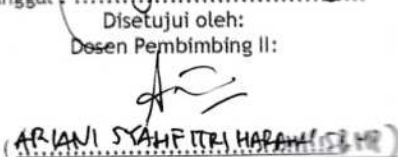 Disetujui oleh:
Dosen Pembimbing II:
(ARIANI SYAHFITRI HARAHAP